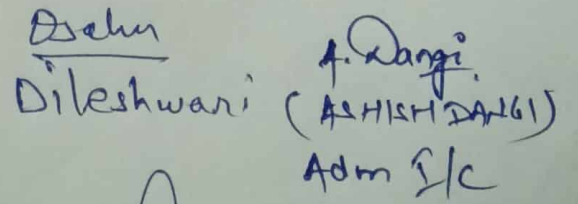 Dsahu
Dileshwari
A. Dangi
(ASHISH DANGI)
Adm I/c